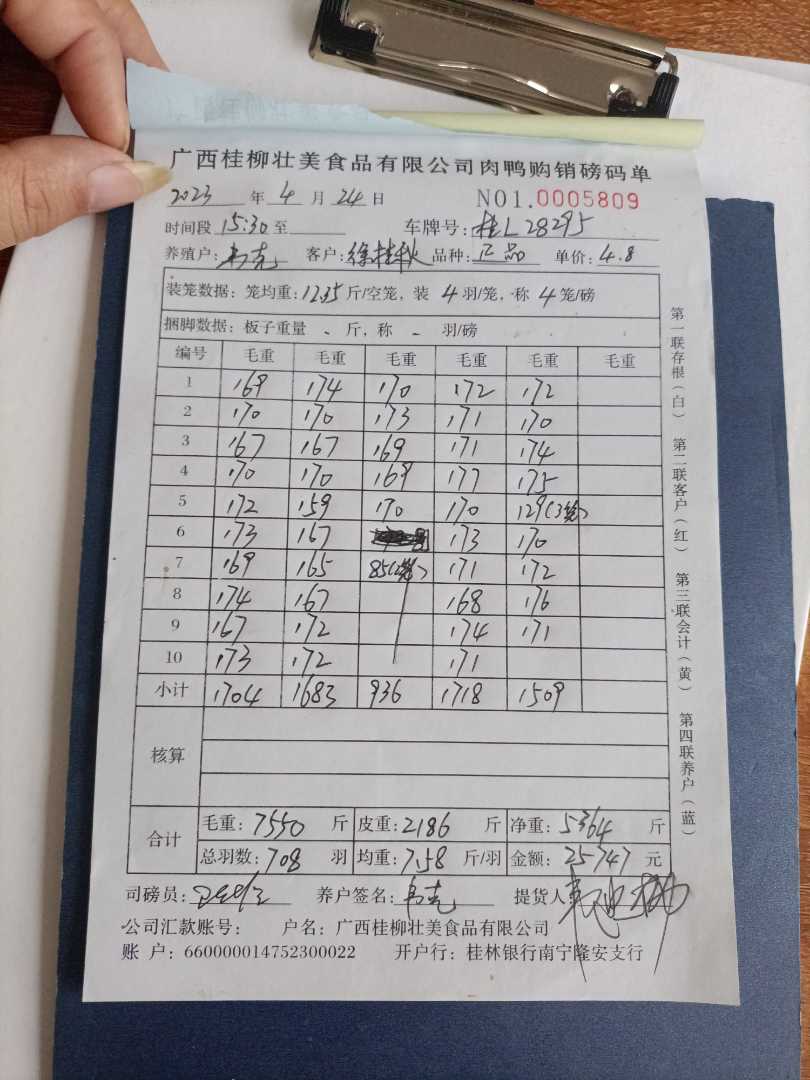 广西桂柳壮美食品有限公司肉鸭购销磅码单
2023 年 4 月 24 日 NO1.0005809
时间段 15:30 至 车牌号: 桂L28295
养殖户: 韦克 客户: 徐桂秋 品种: 正品 单价: 4.8
装笼数据: 笼均重: 12.35 斤/空笼, 装 4 羽/笼, 称 4 笼/磅
捆脚数据: 板子重量 - 斤, 称 - 羽/磅
编号 毛重 毛重 毛重 毛重 毛重 毛重
1 169 174 170 172 172
2 170 170 173 171 170
3 167 167 169 171 174
4 170 170 169 177 175
5 172 159 170 170 129(3笼)
6 173 167 173 170
7 169 165 85(2笼) 171 172
8 174 167 168 176
9 167 172 174 171
10 173 172 171
小计 1704 1683 936 1718 1509
核算
合计
毛重: 7550 斤 皮重: 2186 斤 净重: 5364 斤
总羽数: 708 羽 均重: 7.58 斤/羽 金额: 25747 元
司磅员: 养户签名: 韦克 提货人
公司汇款账号: 户名: 广西桂柳壮美食品有限公司
账 户: 660000014752300022 开户行: 桂林银行南宁隆安支行
第一联存根(白) 第二联客户(红) 第三联会计(黄) 第四联养户(蓝)